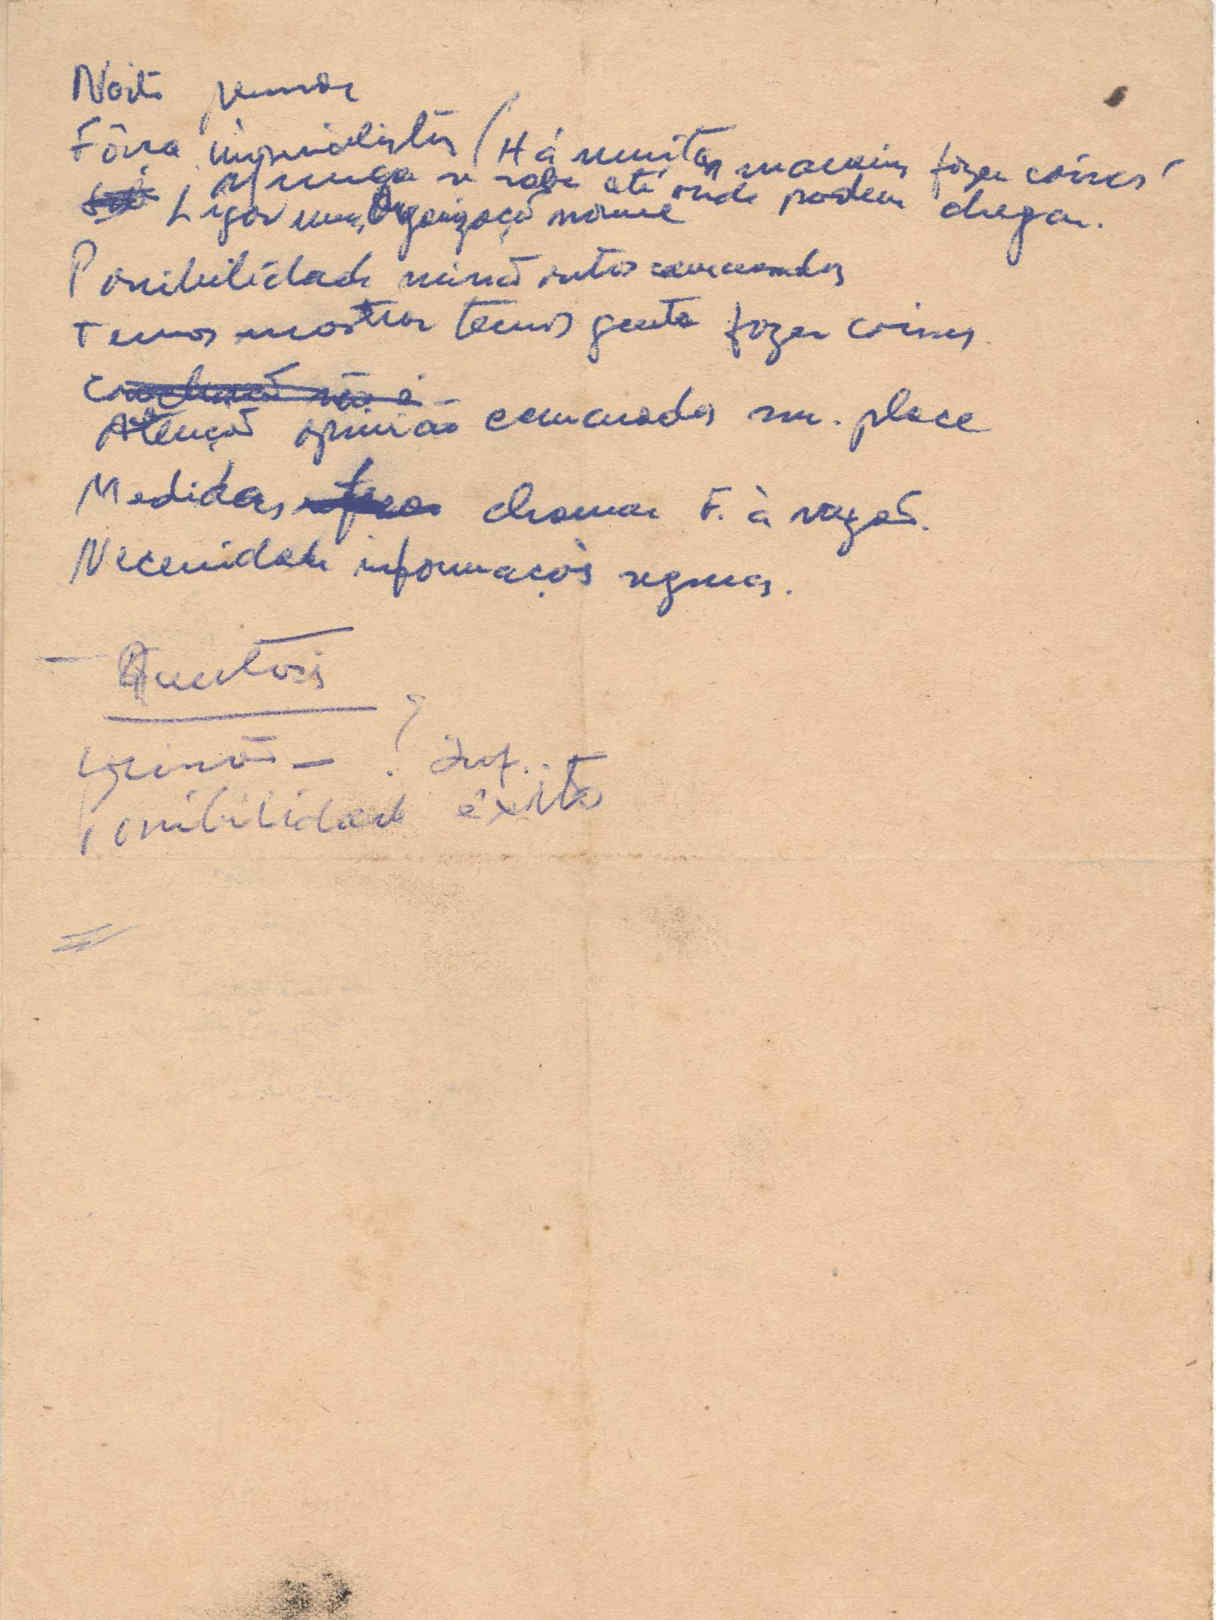 Noite pensar
Fôrça imperialistas (Há muitas maneiras fazer coisas
nunca se sabe até onde podem chegar.
Ligar uma Organização nome
Possibilidade missão outros camaradas
Temos mostrar temos gente fazer coisas
Conclusão não é
Atenção opinião camaradas place
Medidas chamar F. à razão.
Necessidade informações seguras.
opinião — ? Inf.
Possibilidade êxito